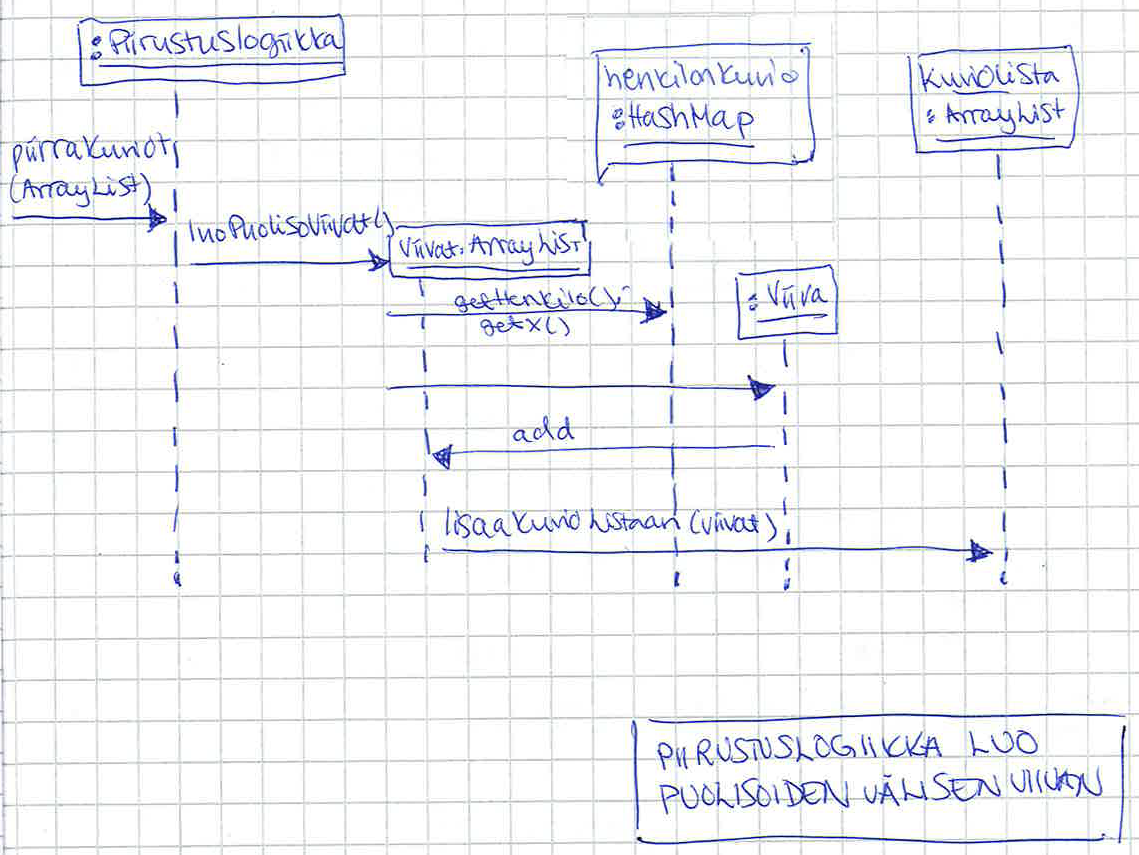 :Piirustuslogiikka
henkilonkuvio
:HashMap
kuviolista
:ArrayList
piirraKuviot
(ArrayList)
luoPuolisoViivat()
viivat:ArrayList
getHenkilo();
getX()
:Viiva
add
lisaaKuvioListaan(viivat)
PIIRUSTUSLOGIIKKA LUO
PUOLISOIDEN VÄLISEN VIIVAN